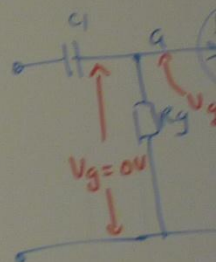 C1
G
Rg
Vg = 0V